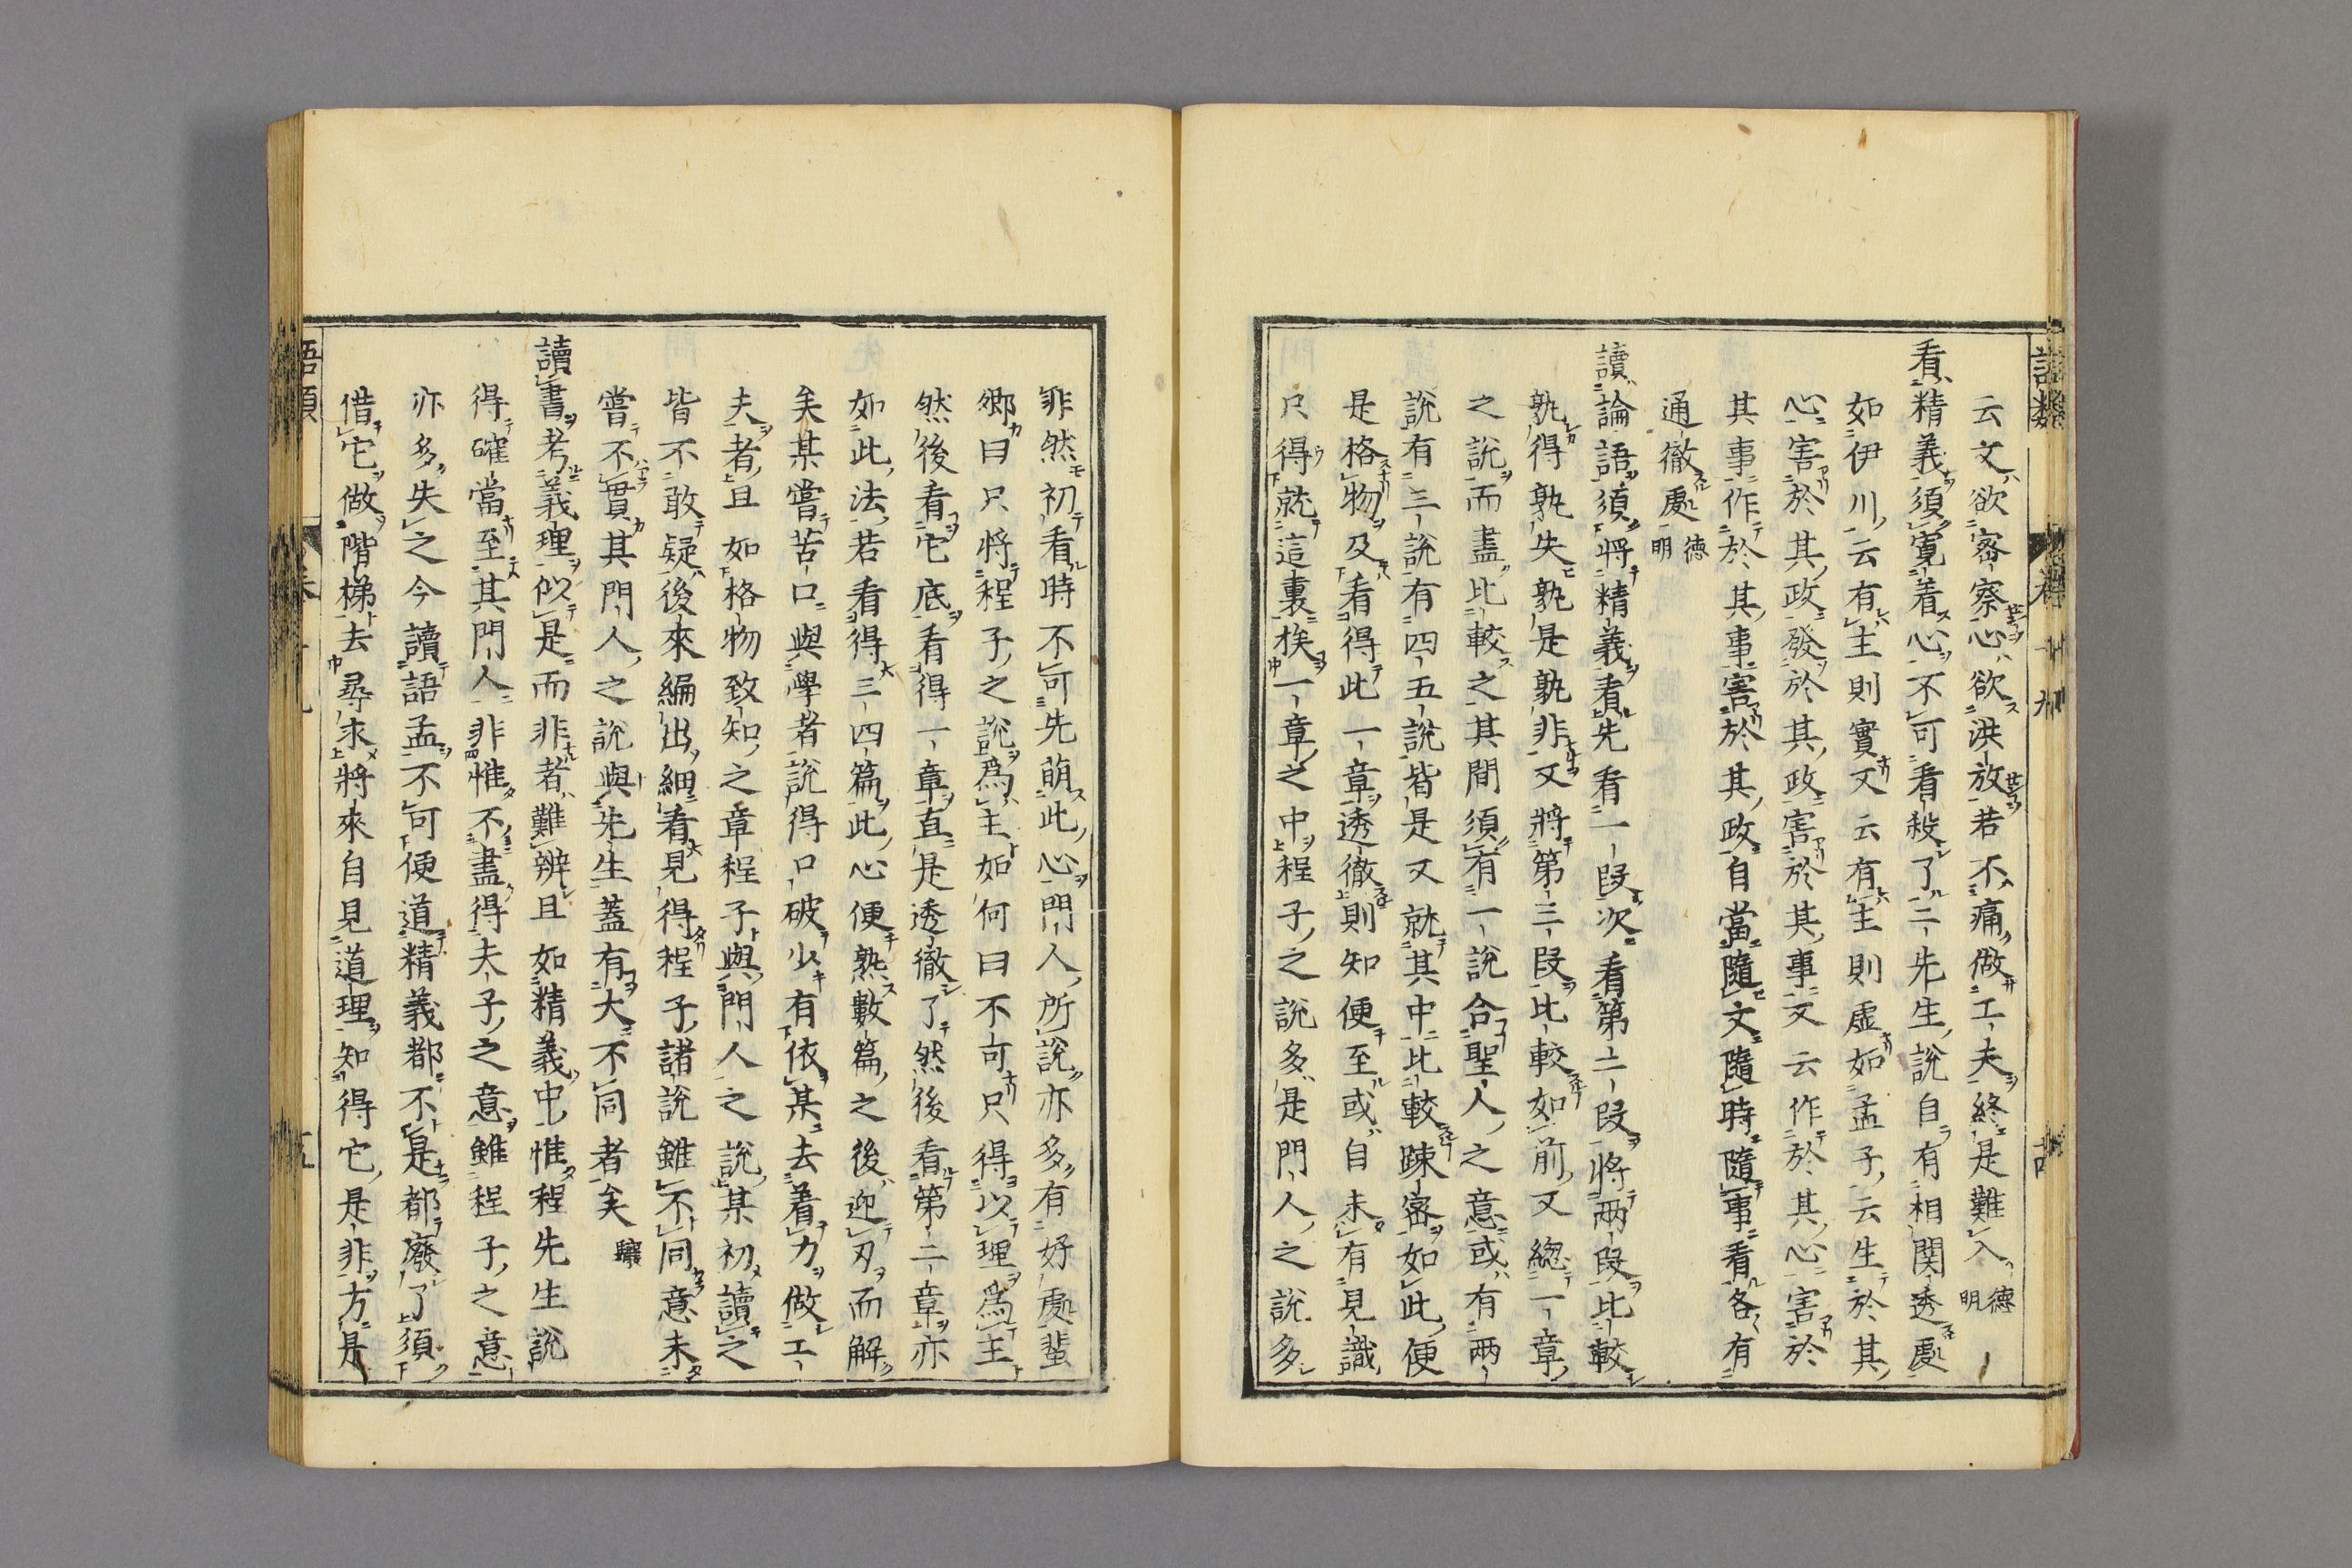 云文欲密察心欲洪放若不痛做工夫終是難入德明
看精義須寬着心不可看殺了二先生說自有相関透處
如伊川云有主則實又云有主則虛如孟子云生於其
心害於其政發於其政害於其事又云作於其心害於
其事作於其事害於其政自當隨文隨時隨事看各有
通徹處德明
讀論語須將精義看先看一段次看第二段將兩段比較
孰得孰失孰是孰非又將第三段比較如前又總一章
之說而盡比較之其間須有一說合聖人之意或有兩
說有三說有四五說皆是又就其中比較踈密如此便
是格物及看得此一章透徹則知便至或自未有見識
只得就這裏挨一章之中程子之說多是門人之說多
非然初看時不可先萌此心門人所說亦多有好處蜚
卿曰只將程子之說爲主如何曰不可只得以理爲主
然後看它底看得一章直是透徹了然後看第二章亦
如此法若看得三四篇此心便熟數篇之後迎刃而解
矣某嘗苦口與學者說得口破少有依某去着力做工
夫者且如格物致知之章程子與門人之說某初讀之
皆不敢疑後來編出細看見得程子諸說雖不同意未
嘗不貫其門人之說與先生蓋有大不同者矣驤
讀書考義理似是而非者難辨且如精義中惟程先生說
得確當至其門人非惟不盡得夫子之意雖程子之意
亦多失之今讀語孟不可便道精義都不是都廢了須
借它做階梯去尋求將來自見道理知得它是非方是